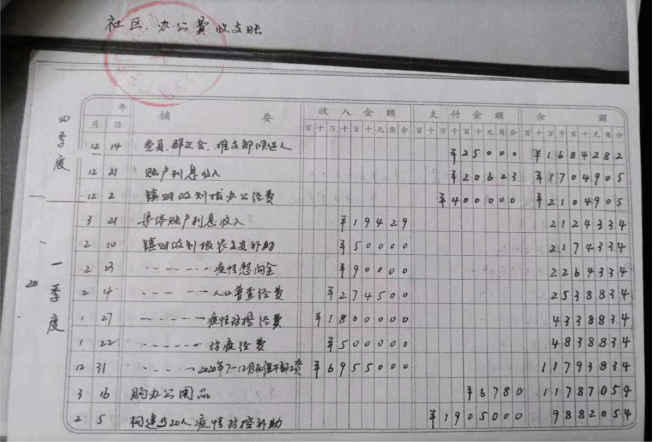 社区办公费收支账
年 摘要 收入金额 支付金额 余额
月 日 百十万千百十元角分 百十万千百十元角分 百十万千百十元角分
四季度
12 14 ¥25000 ¥1684282
12 21 账户利息收入 ¥20623 ¥1704905
12 2 镇财政划拨办公经费 ¥400000 ¥2104905
一季度
3 21 集体账户利息收入 ¥19429 2124334
2 10 镇财政划拨 补助 ¥50000 2174334
2 23 〃 疫情慰问金 ¥90000 2264334
2 4 〃 人口普查经费 ¥274500 2538834
1 27 〃 疫情防控经费 ¥1800000 4338834
1 22 〃 防疫经费 ¥500000 4838834
12 31 〃 2020年7-12月 工资 ¥6955000 11793834
3 16 购办公用品 ¥6780 11787054
2 5 20人疫情防控补助 ¥1905000 9882054
20